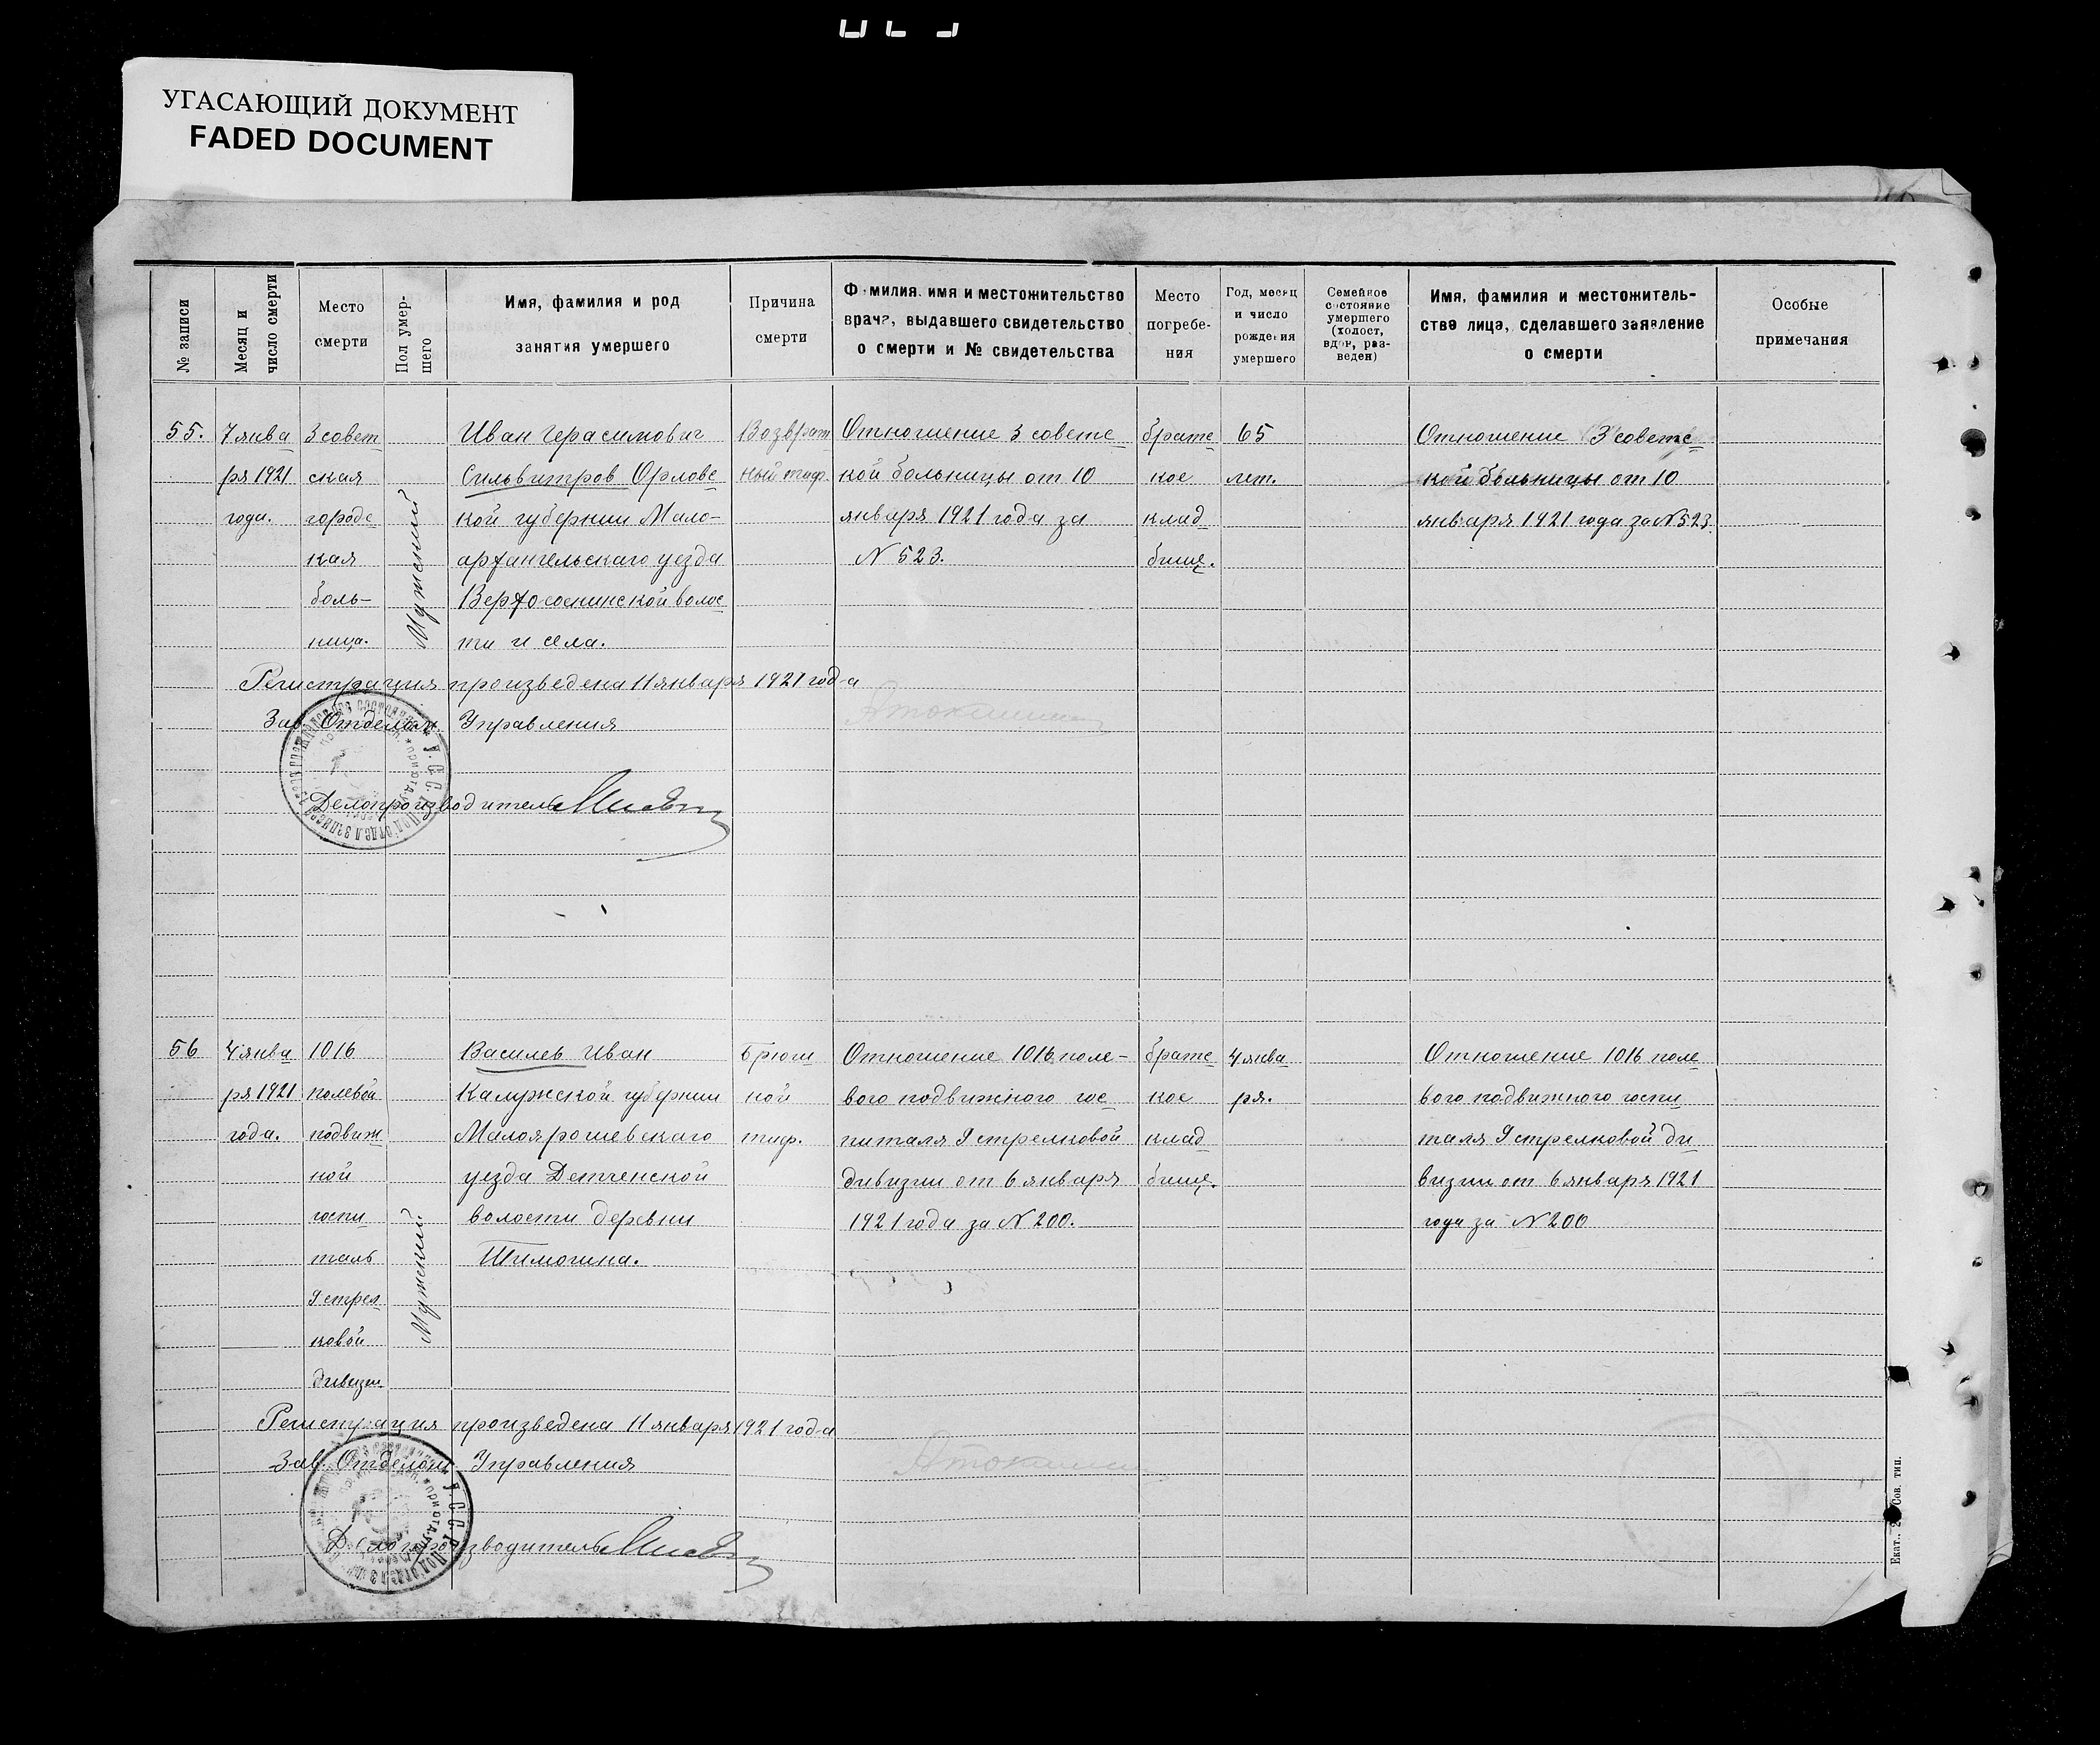 УГАСАЮЩИЙ ДОКУМЕНТ
FADED DOCUMENT
№ записи
Месяц и
число смерти
Место
смерти
Пол умер-
шего
Имя, фамилия и род
занятия умершего
Причина
смерти
Фамилия, имя и местожительство
врача, выдавшего свидетельство
о смерти и № свидетельства
Место
погребе-
ния
Год, месяц
и число
рождения
умершего
Семейное
состояние
умершего
(холост,
вдов, раз-
веден)
Имя, фамилия и местожитель-
ство лица, сделавшего заявление
о смерти
Особые
примечания
55.
7 янва
ря 1921
года.
3 совет
ская
городс
кая
боль-
ница.
Мужский
Иван Герасимович
Сильвитров Орловс
кой губернии Мало-
архангельскаго уезда
Верхососнинской волос
ти и села.
Возврат
ный тиф.
Отношение 3 советс
кой больницы от 10
января 1921 года за
N 523.
братс
кое
клад
бище.
65
лет.
Отношение 3 советс
кой больницы от 10
января 1921 года за N 523.
Регистрация произведена 11 января 1921 года
Зав. Отделом Управления
Делопроизводитель
56
4 янва
ря 1921
года.
1016
полевой
подвиж
ной
госпи
таль
9 стрел
ковой
дивизии
Мужский
Василев Иван
Калужской губернии
Малоярошевскаго
уезда Детченской
волости деревни
Шимошна.
Брюш
ной
тиф.
Отношение 1016 поле-
вого подвижного гос
питаля 9 стрелковой
дивизии от 6 января
1921 года за N 200.
братс
кое
клад
бище.
4 янва
ря.
Отношение 1016 поле
вого подвижного госпи
таля 9 стрелковой ди
визии от 6 января 1921
года за N 200
Регистрация произведена 11 января 1921 года
Зав. Отделом Управления
Делопроизводитель
Сов. тип.